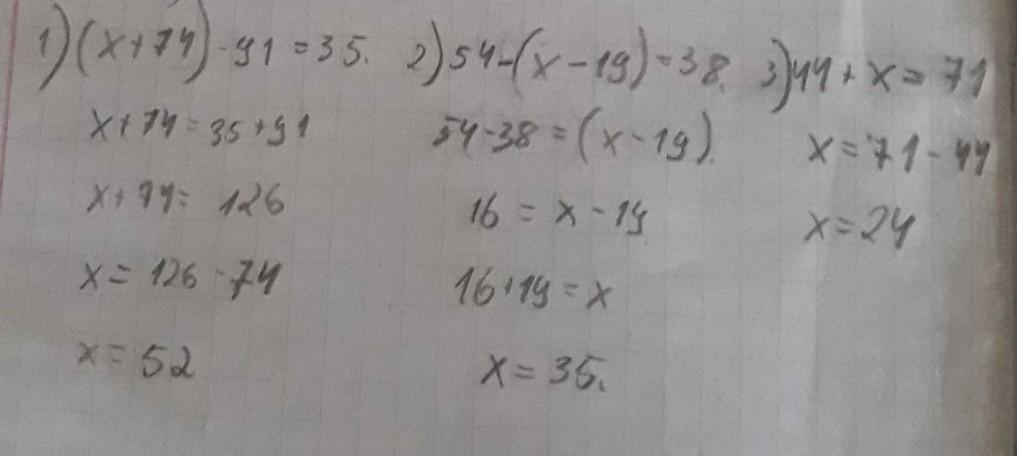 1) (x+74)-91=35.
x+74=35+91
x+74=126
x=126-74
x=52
2) 54-(x-19)=38.
54-38=(x-19).
16=x-19
16+19=x
x=35.
3) 44+x=71
x=71-44
x=24